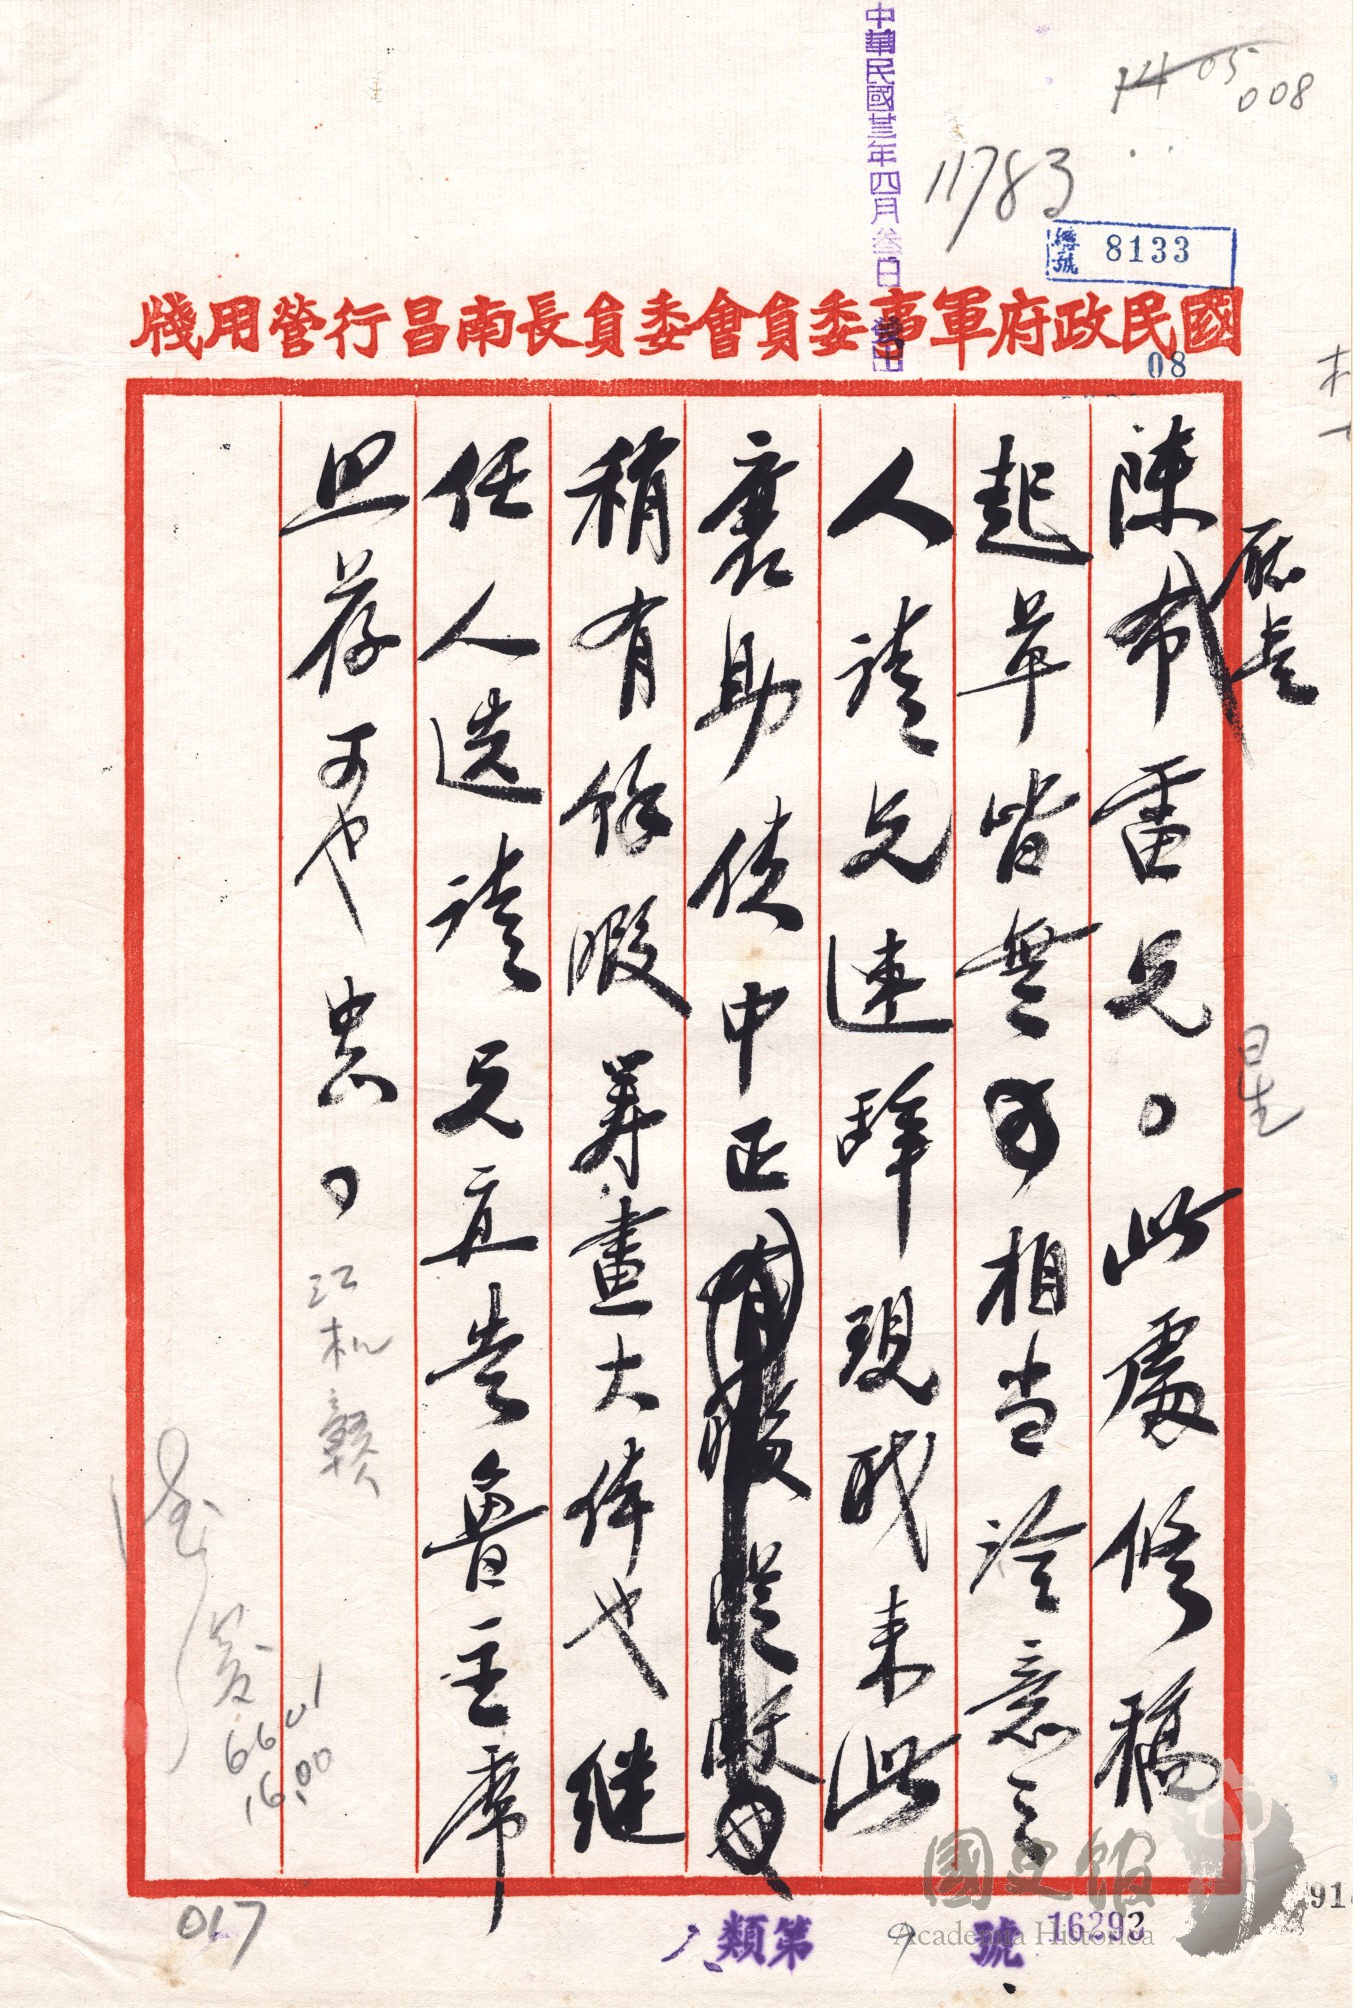 中華民國廿三年四月叁日 發出
14 05
008
11783
總號 8133
國民政府軍事委員會委員長南昌行營用牋
08
陳布雷兄。此處修稿
廳長
起草皆無可相當洽意之
人請兄速辭現職來此
襄助使中正
稍有餘暇籌畫大体也繼
任人選請兄直告魯主席
照荐可也 忠。
江机贛
發
6601
16.00
017
第 類
號 16292
國史館
Academia Historica